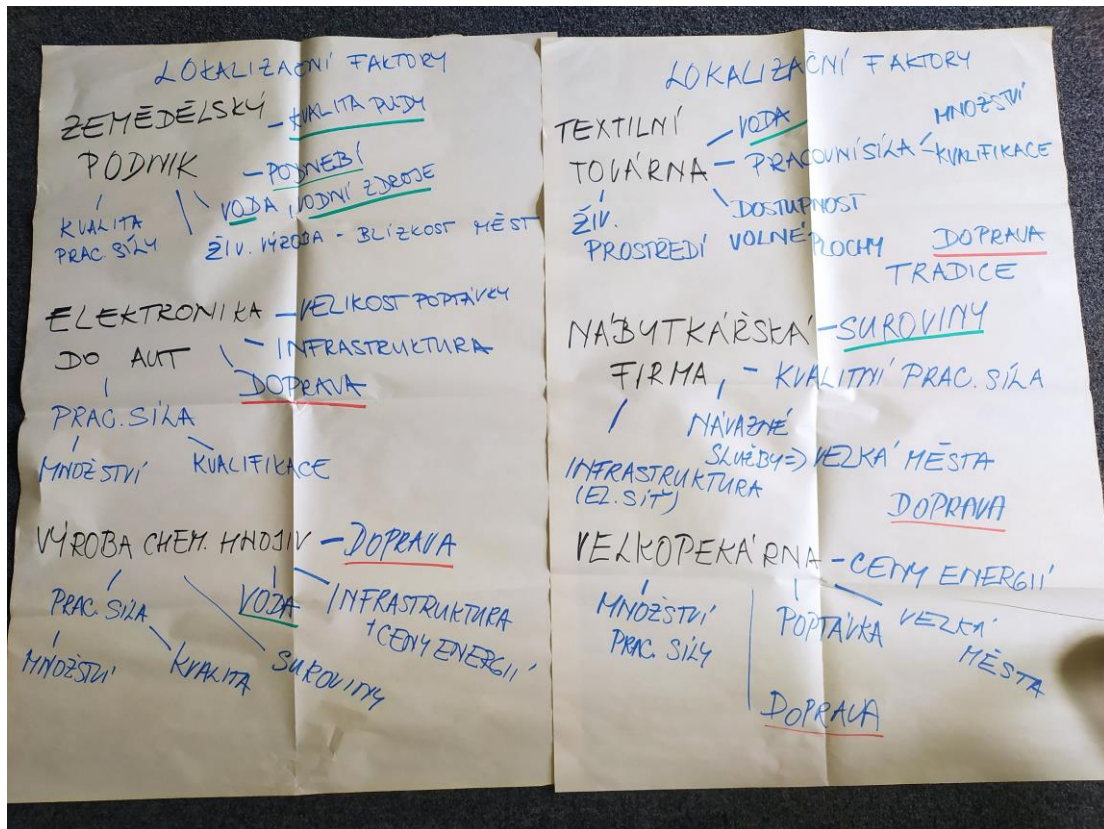 LOKALIZAČNÍ FAKTORY
ZEMĚDĚLSKÝ
PODNIK
– KVALITA PUDY
– PODNEBÍ
VODA, VODNÍ ZDROJE
ŽIV. VÝROBA – BLÍZKOST MĚST
KVALITA
PRAC. SÍLY
ELEKTRONIKA
DO AUT
– VELIKOST POPTÁVKY
– INFRASTRUKTURA
DOPRAVA
PRAC. SÍLA
MNOŽSTVÍ
KVALIFIKACE
VÝROBA CHEM. HNOJIV – DOPRAVA
PRAC. SÍLA
VODA
INFRASTRUKTURA
+ CENY ENERGIÍ
MNOŽSTVÍ
KVALITA
SUROVINY
LOKALIZAČNÍ FAKTORY
TEXTILNÍ
TOVÁRNA
VODA
– PRACOVNÍ SÍLA
MNOŽSTVÍ
KVALIFIKACE
DOSTUPNOST
VOLNÉ PLOCHY
ŽIV.
PROSTŘEDÍ
DOPRAVA
TRADICE
NÁBYTKÁŘSKÁ
FIRMA
– SUROVINY
– KVALITNÍ PRAC. SÍLA
NÁVAZNÉ
SLUŽBY => VELKÁ MĚSTA
INFRASTRUKTURA
(EL. SÍŤ)
DOPRAVA
VELKOPEKÁRNA – CENY ENERGIÍ
MNOŽSTVÍ
PRAC. SÍLY
POPTÁVKA
VELKÁ
MĚSTA
DOPRAVA